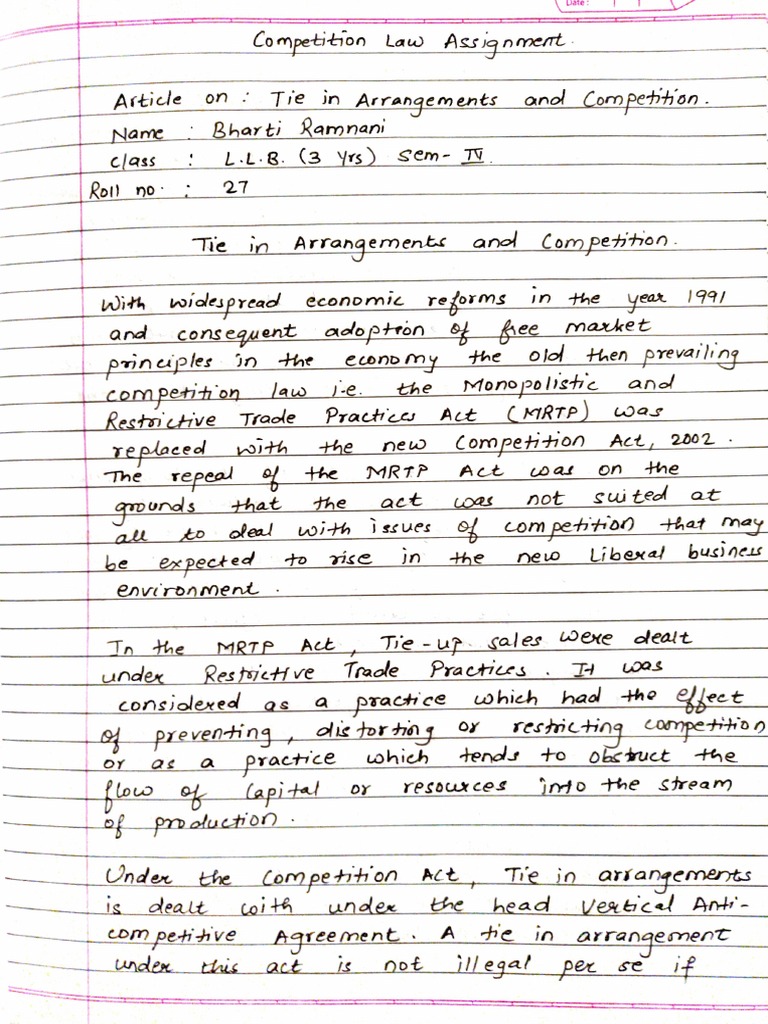 Date:
Competition Law Assignment.
Article on : Tie in Arrangements and Competition.
Name : Bharti Ramnani
Class : L.L.B. (3 Yrs) Sem- IV.
Roll no. : 27
Tie in Arrangements and Competition.
With widespread economic reforms in the year 1991
and consequent adoption of free market
principles in the economy the old then prevailing
competition law i.e. the Monopolistic and
Restrictive Trade Practices Act (MRTP) was
replaced with the new Competition Act, 2002.
The repeal of the MRTP Act was on the
grounds that the act was not suited at
all to deal with issues of competition that may
be expected to rise in the new Liberal business
environment.
In the MRTP Act, Tie-up sales were dealt
under Restrictive Trade Practices. It was
considered as a practice which had the effect
of preventing, distorting or restricting competition
or as a practice which tends to obstruct the
flow of Capital or resources into the stream
of production.
Under the Competition Act, Tie in arrangements
is dealt with under the head Vertical Anti-
competitive Agreement. A tie in arrangement
under this act is not illegal per se if